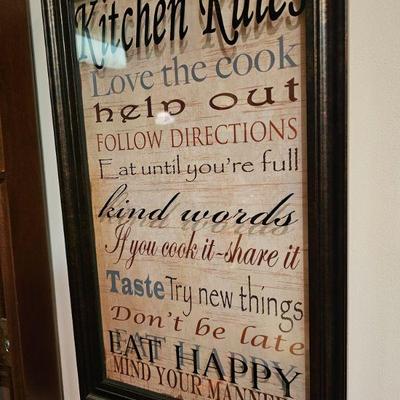 Kitchen Rules
Love the cook
help out
FOLLOW DIRECTIONS
Eat until you're full
kind words
If you cook it-share it
Taste Try new things
Don't be late
EAT HAPPY
MIND YOUR MANNERS